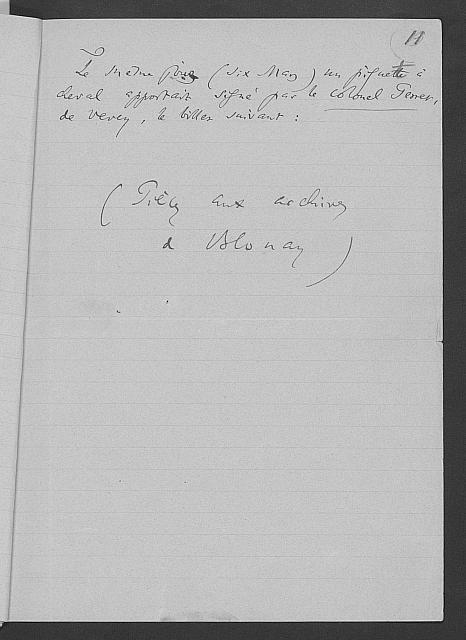 11
Le même jour (six Mars) un piquette à
cheval apportait signé par le colonel
de Vevey, le billet suivant :
(Pièce aux archives
de Blonay)